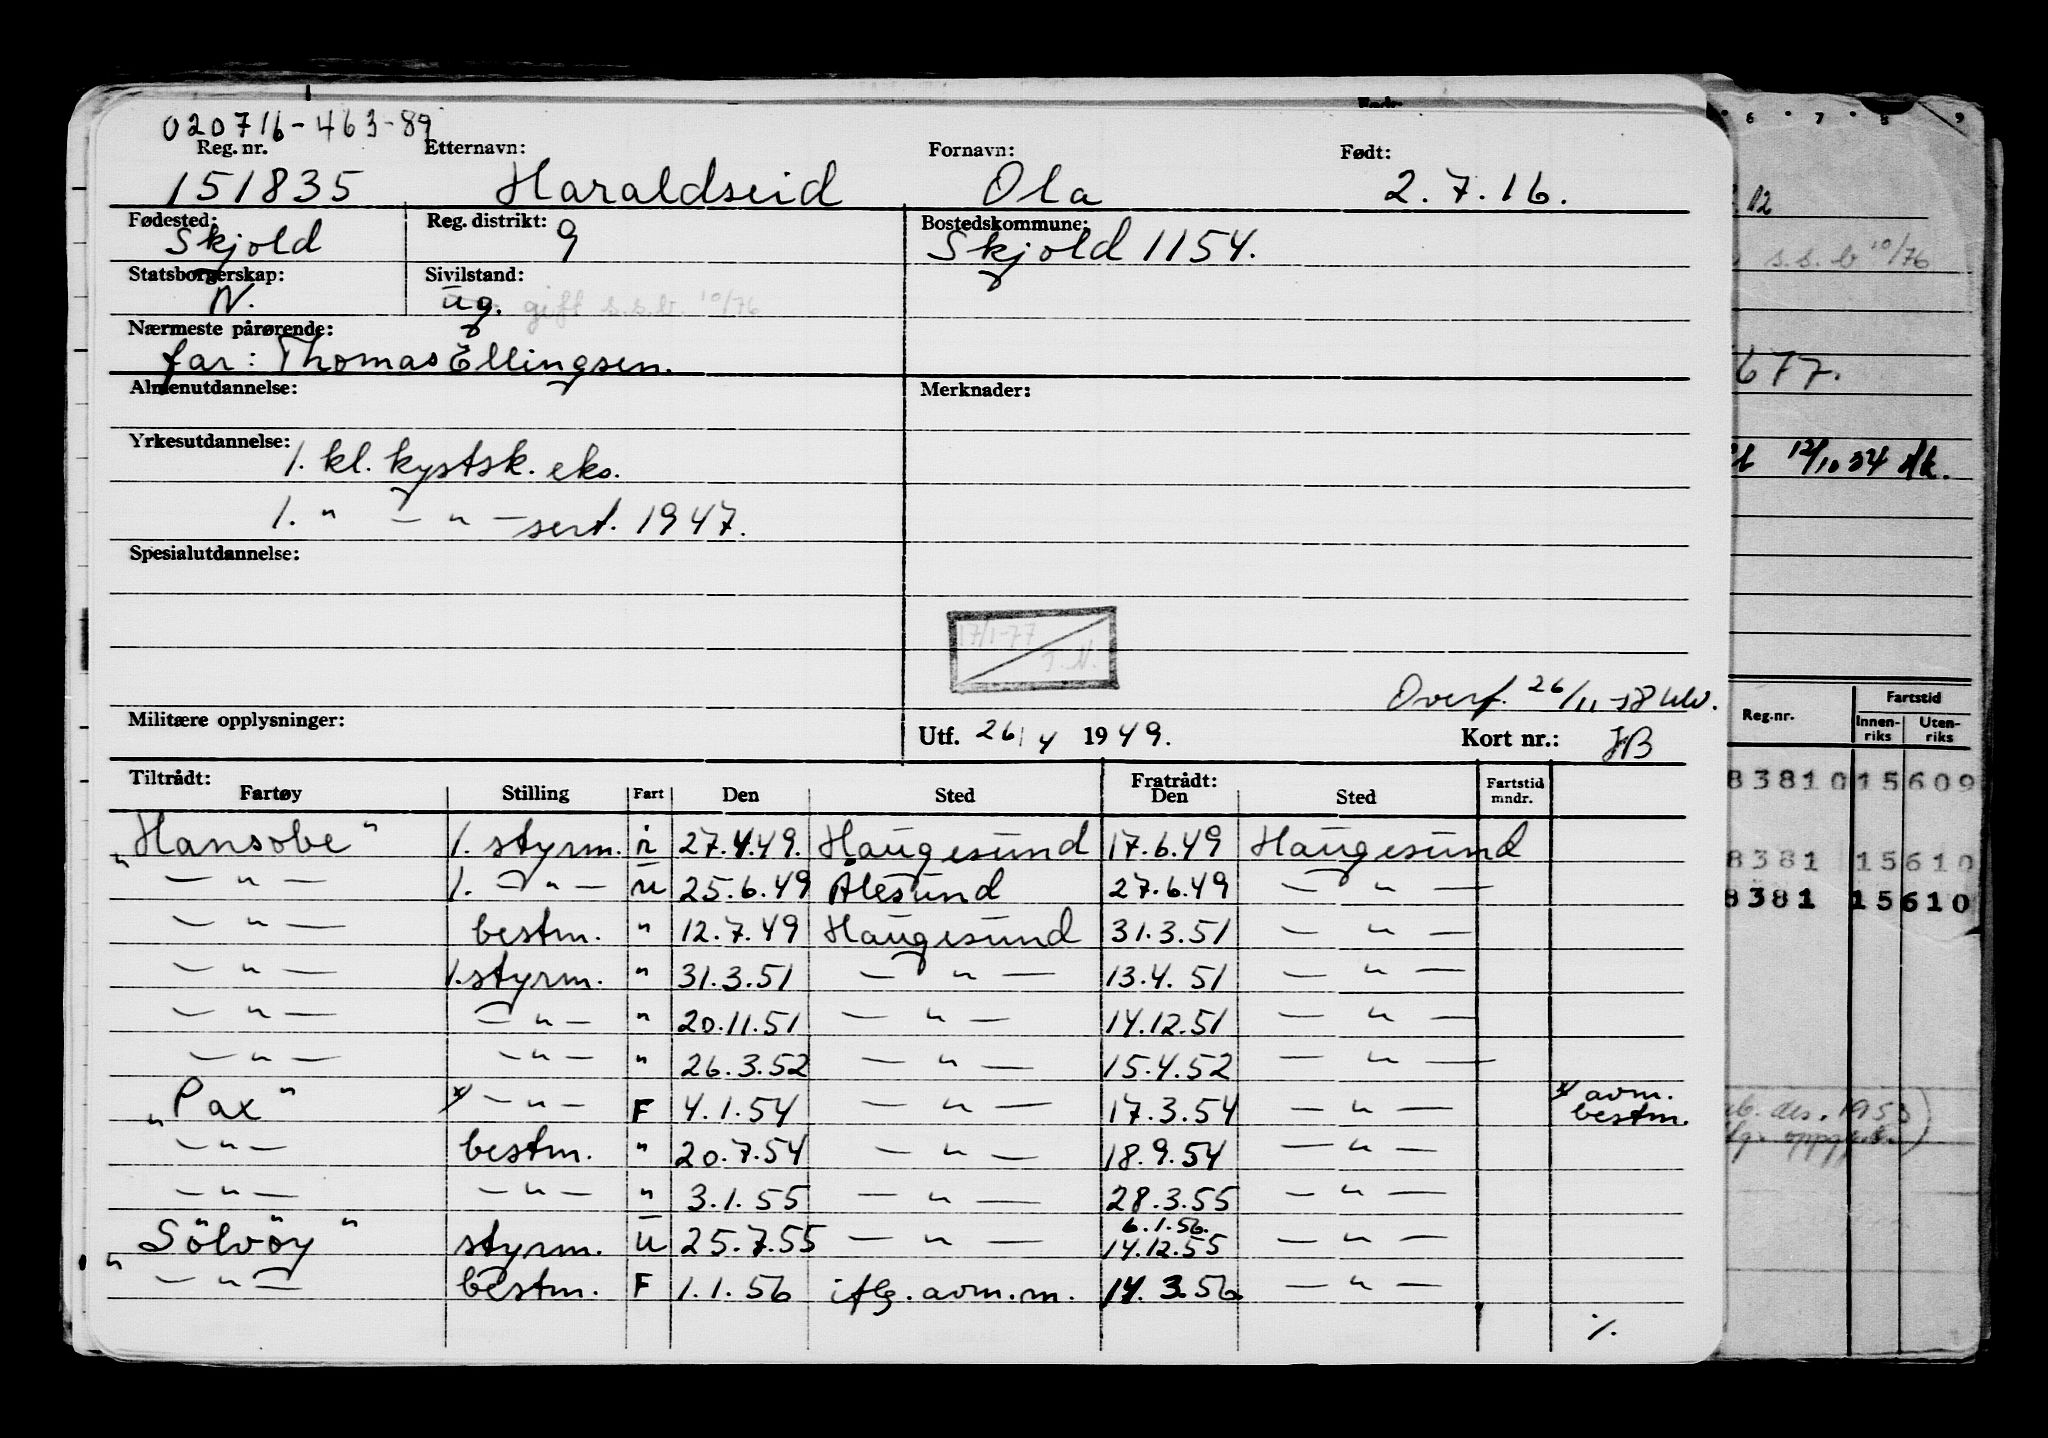 020716-463-89
Reg. nr. Etternavn: Fornavn: Født:
151835 Haraldseid Ola 2.7.16.
Fødested: Reg. distrikt: Bostedskommune:
Skjold 9 Skjold 1154.
Statsborgerskap: Sivilstand:
N. ug. gift s.s.b. 10/76
Nærmeste pårørende:
far: Thomas Ellingsen.
Almenutdannelse: Merknader:
Yrkesutdannelse:
1. kl. kystsk. eks.
1. " — " — sert. 1947.
Spesialutdannelse:
17/1-77
J.N.
Overf. 26/11-58
Militære opplysninger: Utf. 26/4 1949. Kort nr.: JB
Tiltrådt: Fratrådt: Fartstid
Fartøy Stilling Fart Den Sted Den Sted mndr.
"Hansobe" 1. styrm. i 27.4.49. Haugesund 17.6.49 Haugesund
— " — 1. — " — u 25.6.49 Ålesund 27.6.49 — " —
— " — bestm. " 12.7.49 Haugesund 31.3.51 — " —
— " — 1. styrm. " 31.3.51 — " — 13.4.51 — " —
— " — — " — " 20.11.51 — " — 14.12.51 — " —
— " — — " — " 26.3.52 — " — 15.4.52 — " —
"Pax" x — " — F 4.1.54 — " — 17.3.54 — " — x avm. bestm.
— " — bestm. " 20.7.54 — " — 18.9.54 — " —
— " — — " — " 3.1.55 — " — 28.3.55 — " —
6.1.56.
"Sölvöy" styrm. u 25.7.55 — " — 14.12.55 — " —
— " — bestm. F 1.1.56 iflg. avm.m. 14.3.56. — " —
%
6 7 8 9
12
s.s.b 10/76
677.
12/10 54
Fartstid
Reg.nr. Innen-riks Uten-riks
8381 0 15 609
8381 15 610
8381 15 610
des. 1953)
oppg.